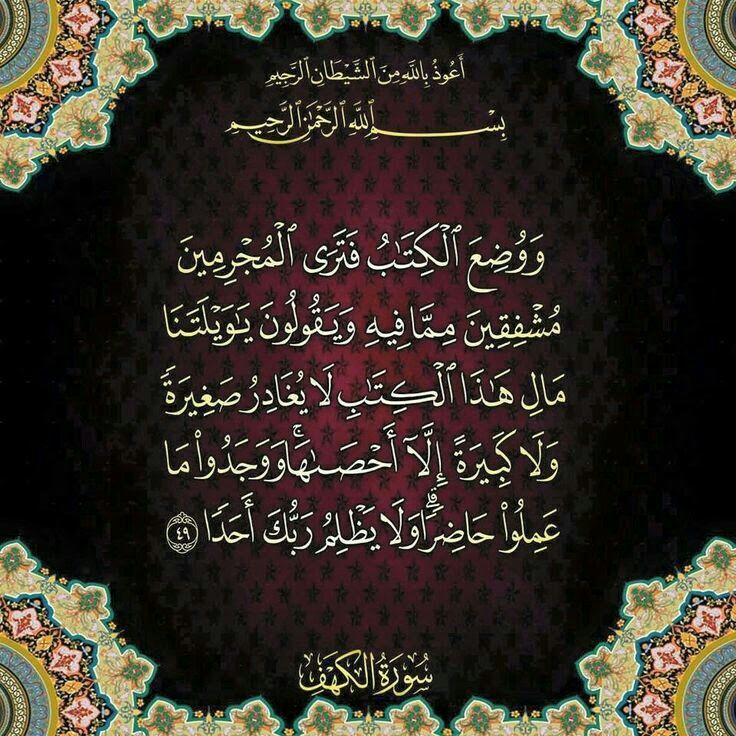 أَعُوذُ بِٱللَّهِ مِنَ ٱلشَّيْطَانِ ٱلرَّجِيمِ
بِسْمِ ٱللَّهِ ٱلرَّحْمَٰنِ ٱلرَّحِيمِ
وَوُضِعَ ٱلْكِتَٰبُ فَتَرَى ٱلْمُجْرِمِينَ
مُشْفِقِينَ مِمَّا فِيهِ وَيَقُولُونَ يَٰوَيْلَتَنَا
مَالِ هَٰذَا ٱلْكِتَٰبِ لَا يُغَادِرُ صَغِيرَةً
وَلَا كَبِيرَةً إِلَّآ أَحْصَىٰهَا ۚ وَوَجَدُوا۟ مَا
عَمِلُوا۟ حَاضِرًا ۗ وَلَا يَظْلِمُ رَبُّكَ أَحَدًا ٤٩
سُورَةُ الكَهْف